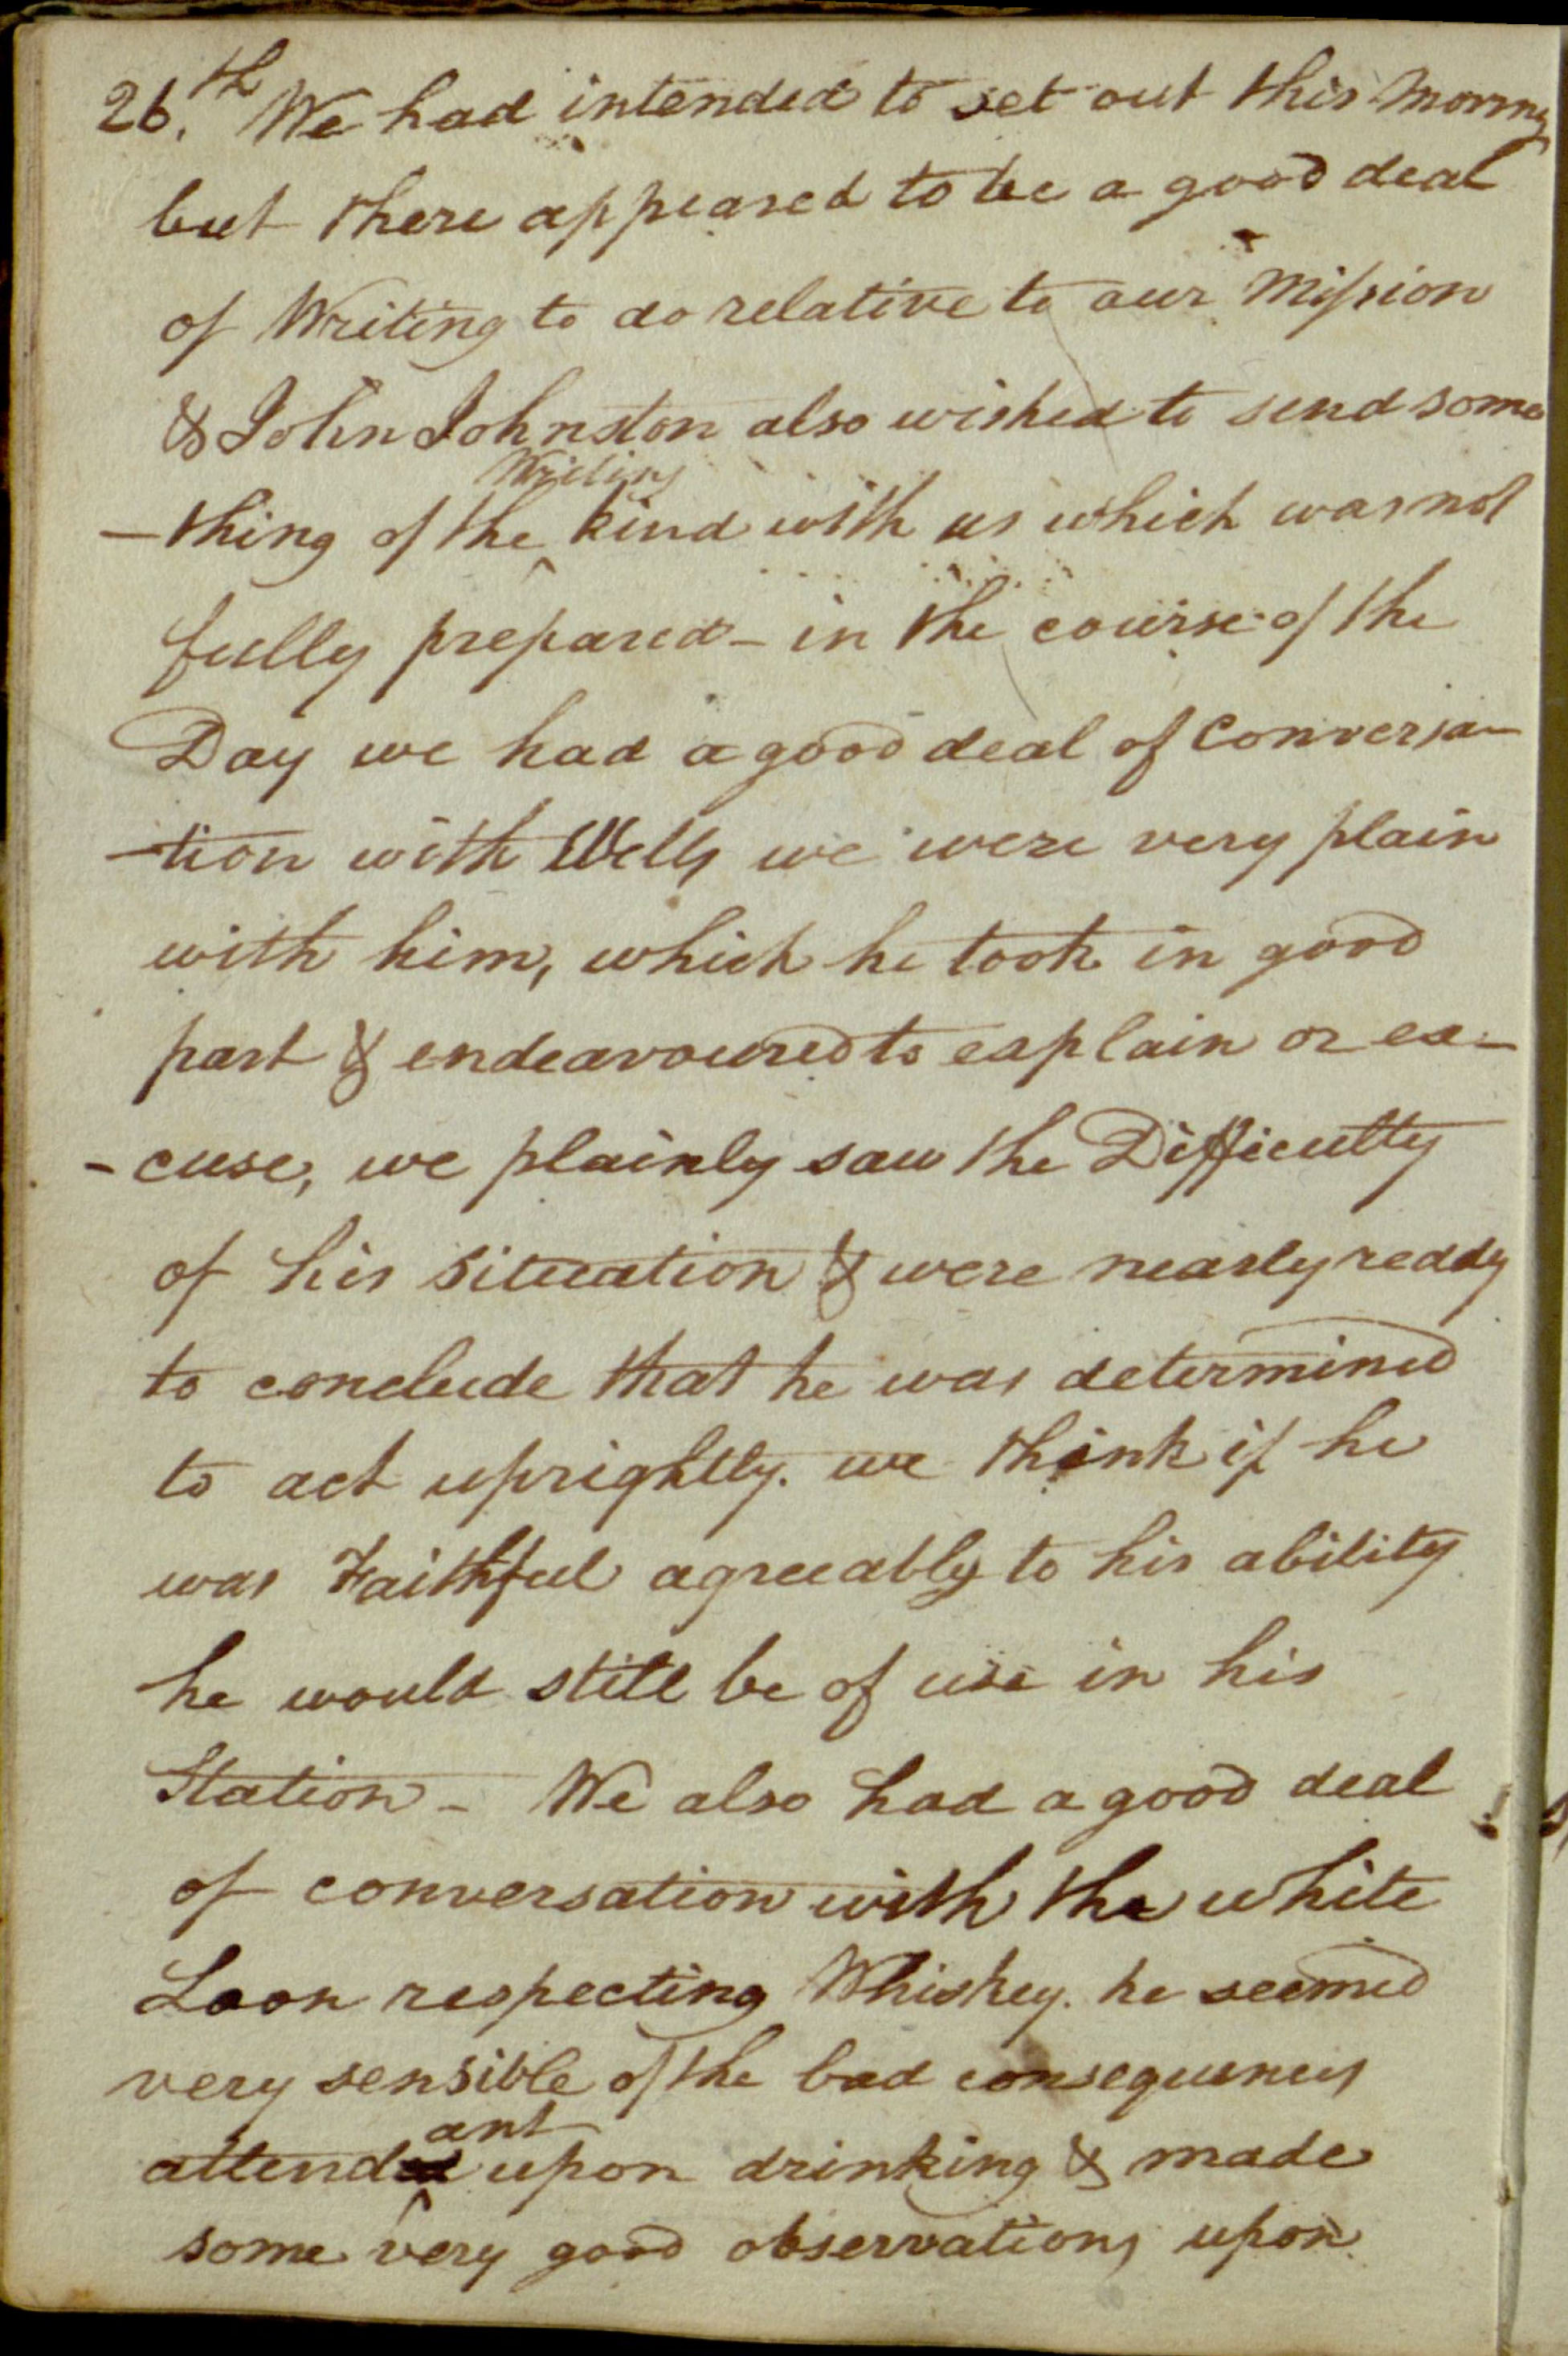 26.th We had intended to set out this Morning
but there appeared to be a good deal
of Writing to do relative to our Mission
& John Johnston also wished to send some
-thing of the ^Writing kind with us which was not
fully prepared - in the course of the
Day we had a good deal of Conversa-
-tion with Wells we were very plain
with him, which he took in good
part & endeavoured to explain or ex-
-cuse, we plainly saw the Difficulty
of his situation & were nearly reddy
to conclude that he was determined
to act uprightly. we think if he
was Faithful agreeably to his ability
he would still be of use in his
Station - We also had a good deal
of conversation with the white
Loon respecting Whiskey. he seemed
very sensible of the bad consequences
attend^ant upon drinking & made
some very good observations upon